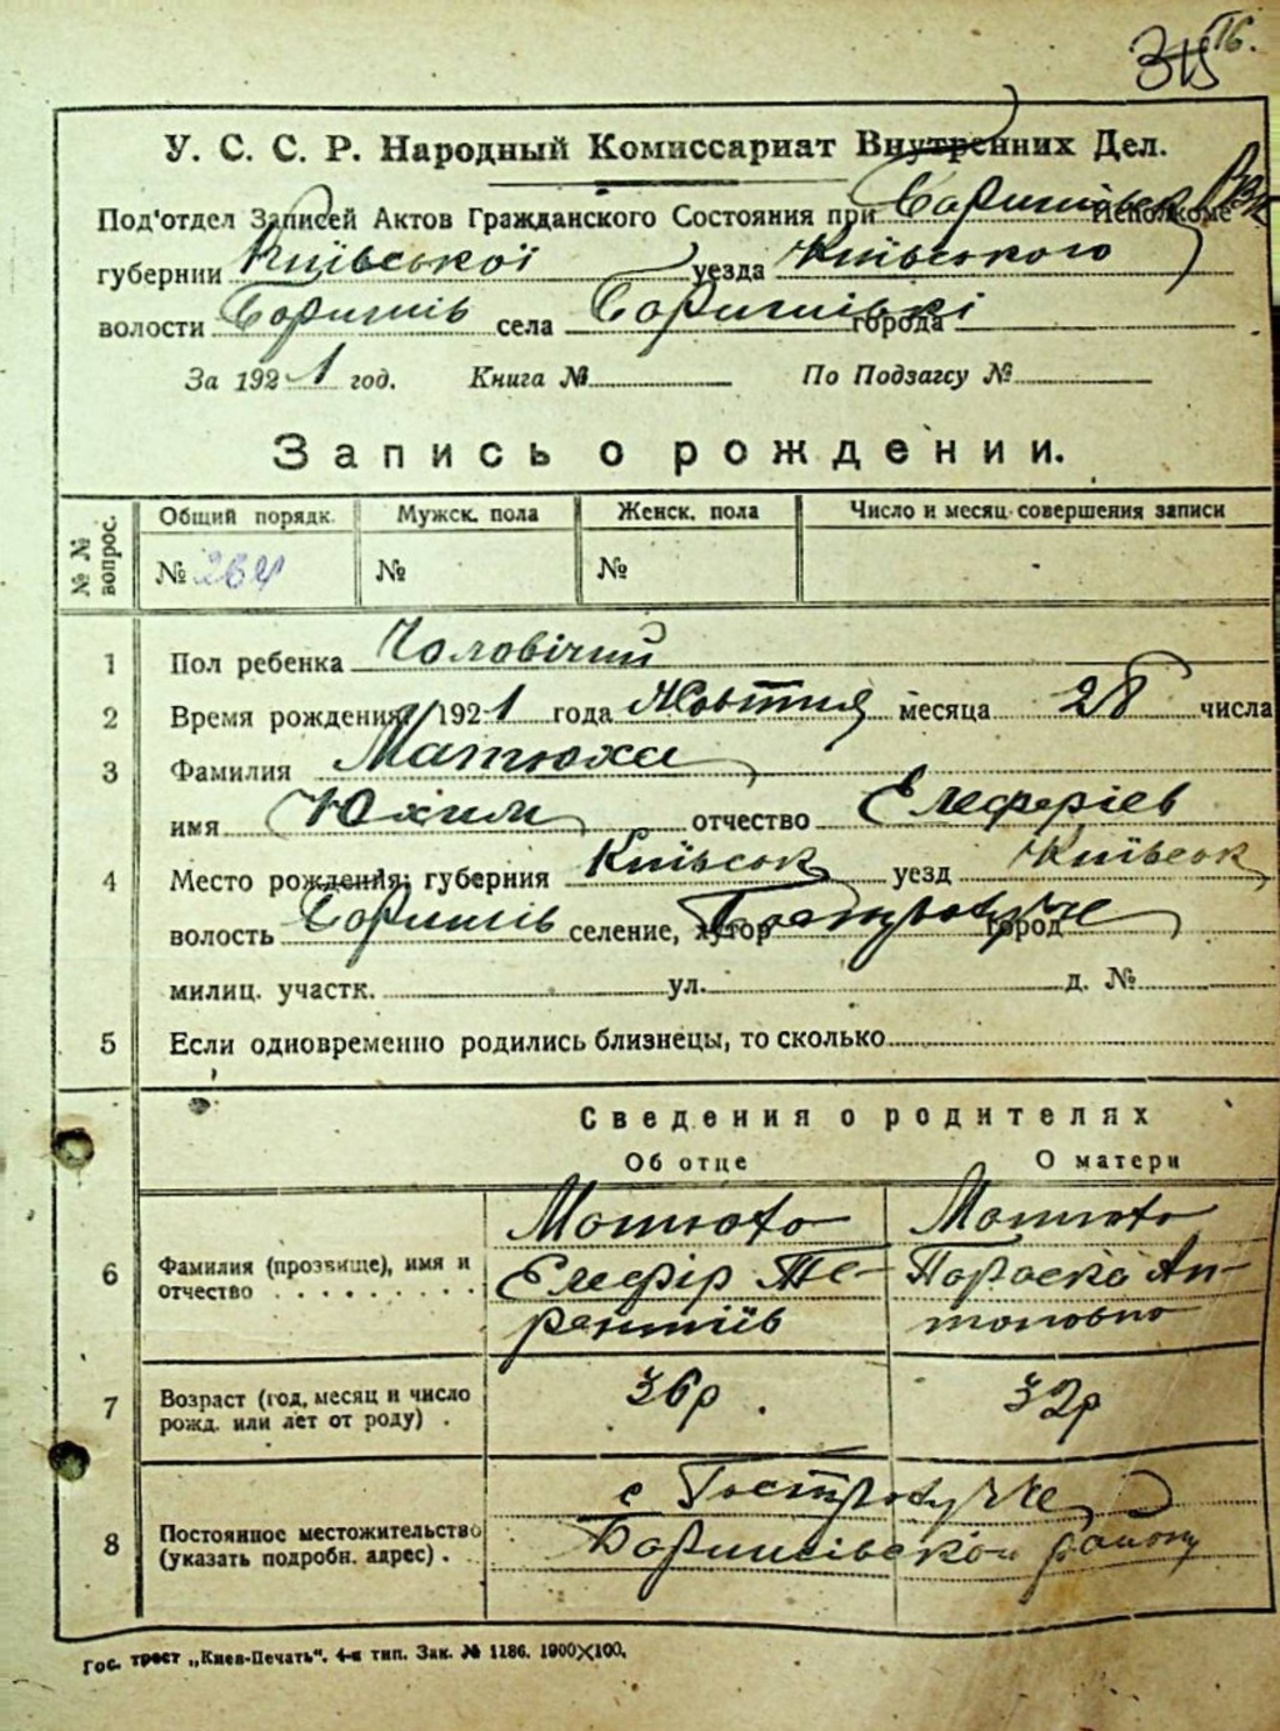 315 16.
У. С. С. Р. Народный Комиссариат Внутренних Дел.
Под'отдел Записей Актов Гражданского Состояния при Баришівськ РВК Исполкоме
губернии Київської уезда Київського
волости Баришів села Баришівкі города
За 1921 год. Книга № По Подзагсу №
Запись о рождении.
№ № вопрос. Общий порядк. Мужск. пола Женск. пола Число и месяц совершения записи
№ 264 № №
1 Пол ребенка Чоловічий
2 Время рождения: 1921 года Жовтня месяца 28 числа
3 Фамилия Матюха
имя Юхим отчество Елеферіев
4 Место рождения: губерния Київськ уезд Київськ
волость Баришів селение, хутор Гостролуччє город
милиц. участк. ул. д. №
5 Если одновременно родились близнецы, то сколько
Сведения о родителях
Об отце О матери
6 Фамилия (прозвище), имя и отчество
Матюха
Елефір Те-
рентіїв
Матюха
Параска Ан-
тоновна
7 Возраст (год, месяц и число рожд. или лет от роду) . 36р. 32р
8 Постоянное местожительство (указать подробн. адрес) .
с Гостролуччє
Баришівської району
Гос. трест „Киев-Печать“. 4-я тип. Зак. № 1186. 1000×100.